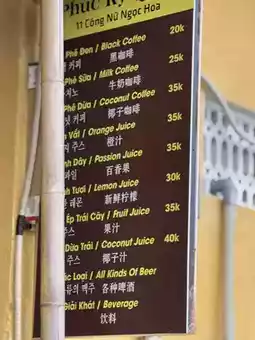 Phúc Kỳ
11 Công Nữ Ngọc Hoa
Phê Đen / Black Coffee 20k
커피 黑咖啡
Phê Sữa / Milk Coffee 25k
牛奶咖啡
Phê Dừa / Coconut Coffee 35k
커피 椰子咖啡
Vắt / Orange Juice 35k
주스 橙汁
Dây / Passion Juice 35k
百香果
Tươi / Lemon Juice 30k
레몬 新鲜柠檬
Ép Trái Cây / Fruit Juice 35k
주스 果汁
Dừa Trái / Coconut Juice 40k
주스 椰子汁
Loại / All Kinds Of Beer
류의 맥주 各种啤酒
Giải Khát / Beverage
饮料